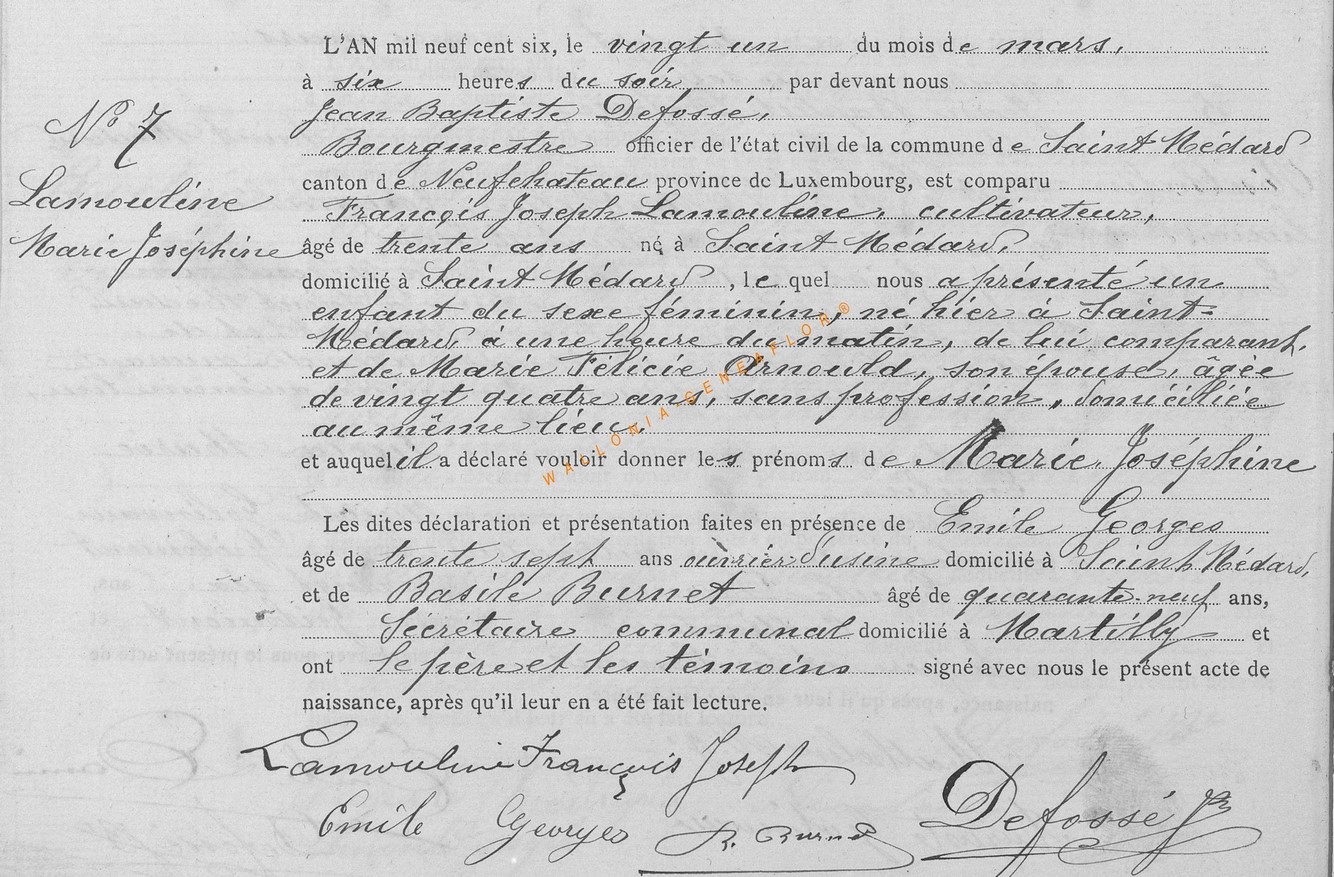 L'AN mil neuf cent six, le vingt un du mois de mars,
à six heures du soir par devant nous
Jean Baptiste Defossé,
Bourgmestre officier de l'état civil de la commune de Saint Médard
canton de Neufchateau province de Luxembourg, est comparu
François Joseph Lamouline, cultivateur,
âgé de trente ans né à Saint Médard,
domicilié à Saint Médard, le quel nous a présenté un
enfant du sexe féminin, né hier à Saint-
Médard, à une heure du matin, de lui comparant,
et de Marie Félicie Arnould, son épouse, âgée
de vingt quatre ans, sans profession, domiciliée
au même lieu.
et auquel il a déclaré vouloir donner les prénoms de Marie Joséphine
Les dites déclaration et présentation faites en présence de Emile Georges
âgé de trente sept ans ouvrier d'usine domicilié à Saint Médard,
et de Basile Burnet âgé de quarante-neuf ans,
Secrétaire communal domicilié à Martilly et
ont le père et les témoins signé avec nous le présent acte de
naissance, après qu'il leur en a été fait lecture.
No 7
Lamouline
Marie Joséphine
WALLONIA-GENEAFLOR®
Lamouline François Joseph
Emile Georges B. Burnet Defossé